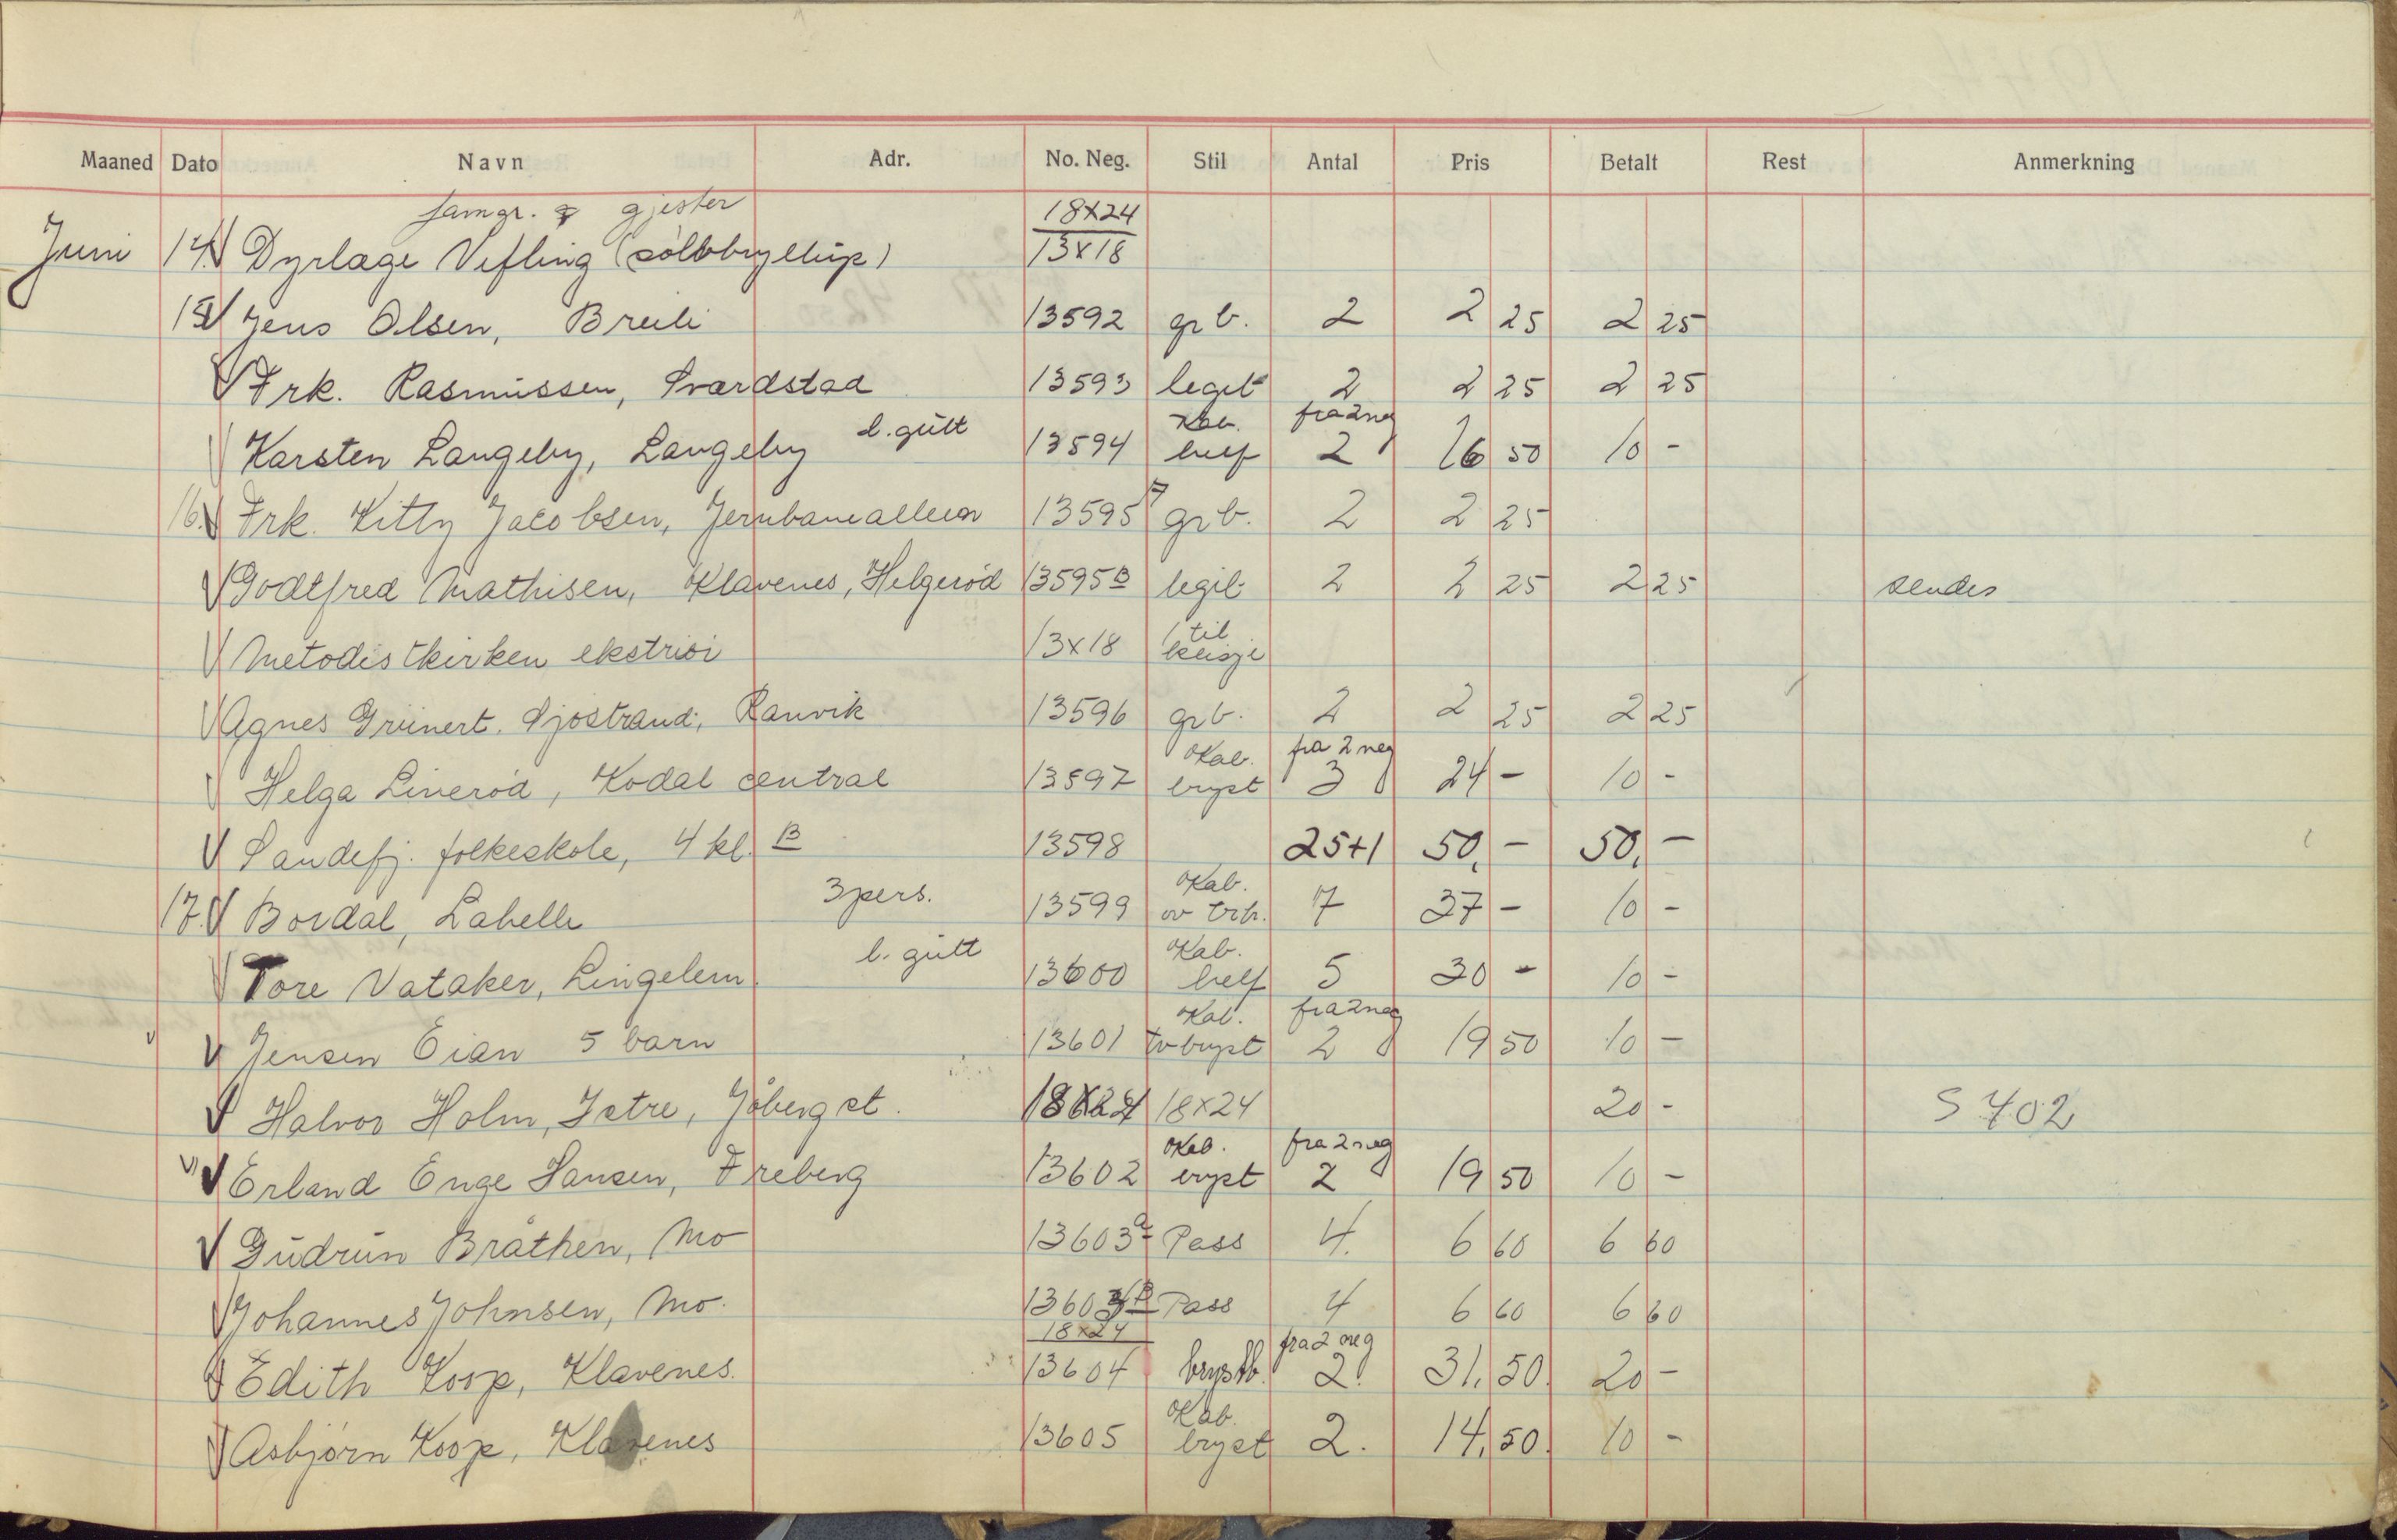 Maaned Dato Navn Adr. No. Neg. Stil Antal Pris Betalt Rest Anmerkning
famgr. gjester 18x24
Juni 14. Dyrlæge Vefling (sølvbryllup) 13x18
15 Jens Olsen, Breili 13592 gr b. 2 2 25 2 25
Frk. Rasmussen, Sværdstad 13593 legit 2 2 25 2 25
Kab. fra 2 neg
Karsten Langeby, Langeby l. gutt 13594 helf 2 16 50 10 -
16. Frk. Kitty Jacobsen, Jernbanealleen 13595 gr b. 2 2 25
Godtfred Mathisen, Klavenes, Helgerød 13595B legit 2 2 25 2 25 sendes
til
Metodistkirken 13x18
Agnes Grünert. Sjøstrand, Ranvik 13596 gr b. 2 2 25 2 25
Kab. fra 2 neg
Helga Linerød, Kodal central 13597 bryst 3 24 - 10 -
Sandefj. folkeskole, 4 kl. B 13598 25+1 50, - 50, -
Kab.
17. Bordal, Labelle 3 pers. 13599 7 37 - 10 -
Kab.
Tore Vataker, Lingelem l. gutt 13600 helf 5 30 - 10 -
Kab. fra 2 neg
Jensen Eian 5 barn 13601 bryst 2 19 50 10 -
Halvor Holm, Istre, Jåberg st. 18x24 18x24 20 - S 402
Kab. fra 2 neg
Erland Enge Hansen, Freberg 13602 bryst 2 19 50 10 -
Gudrun Bråthen, Mo 13603a Pass 4. 6 60 6 60
Johannes Johnsen, Mo. 13603B Pass 4 6 60 6 60
18x24 fra 2 neg
Edith Koop, Klavenes. 13604 brystb. 2. 31, 50. 20 -
Kab.
Asbjørn Koop, Klavenes 13605 bryst 2. 14, 50. 10 -